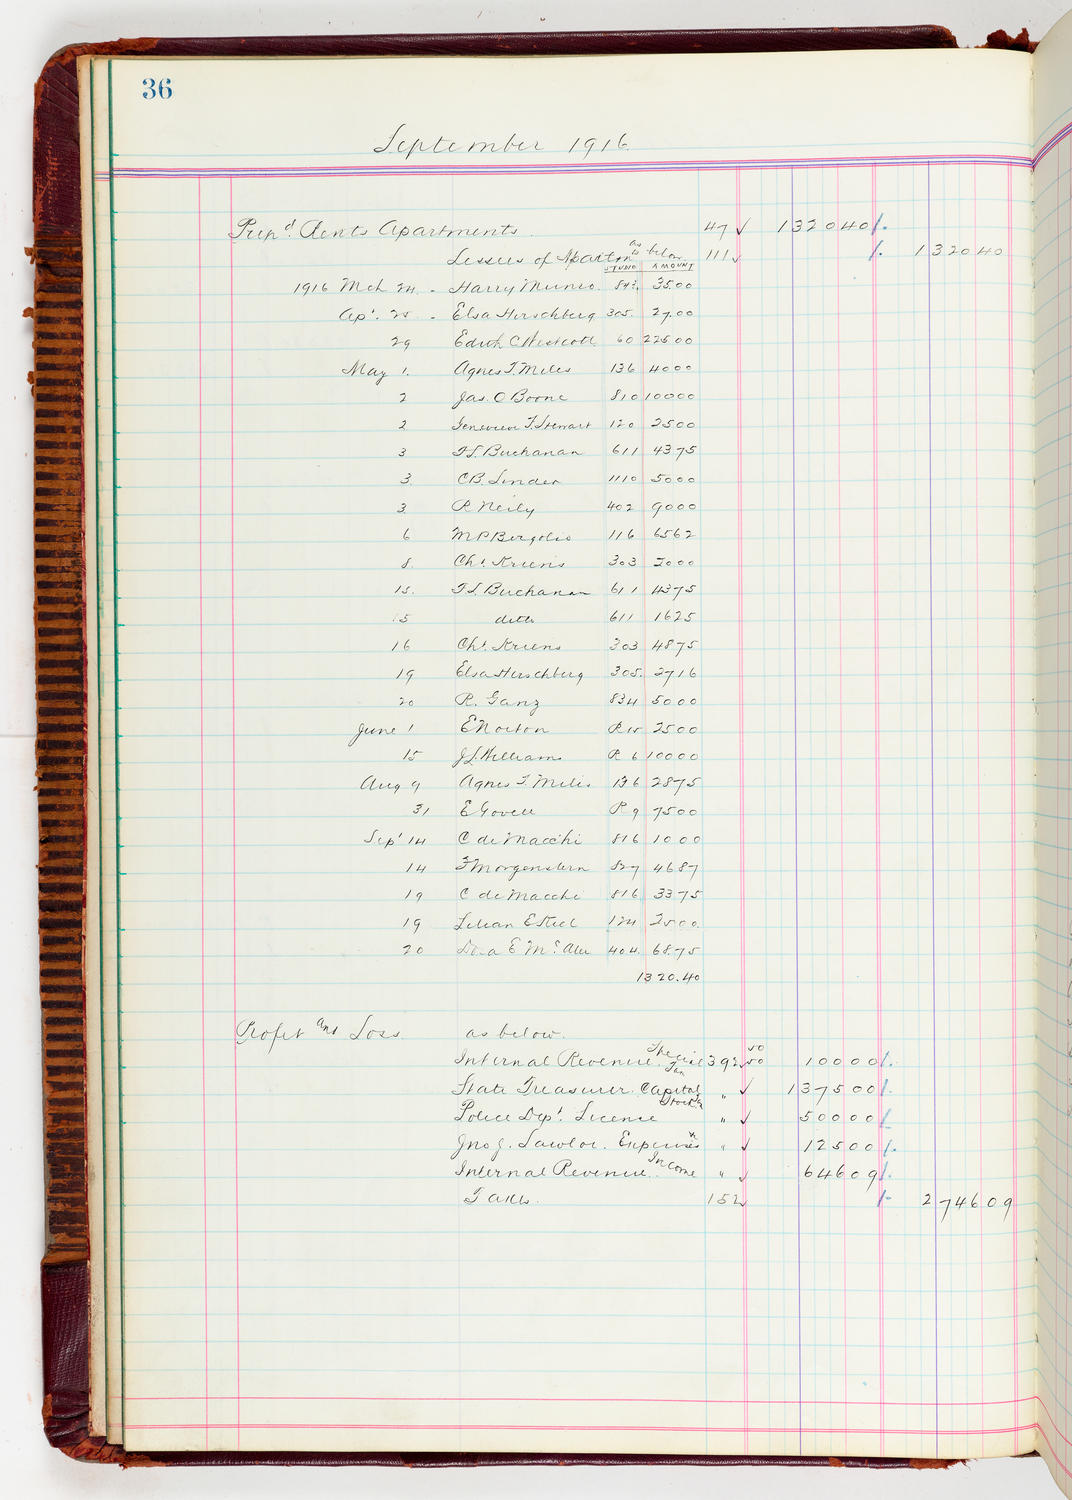 36
September 1916
Prepd. Rents Apartments. 47 ✓ 1320 40 /.
Lessees of Apartm as below 111 ✓ /. 1320 40
STUDIO AMOUNT
1916 Mch 24 - Harry Munro. 843. 35 00
Apl. 25 - Elsa Hirschberg 305. 27.00
29 Edith C Westcott 60 225 00
May 1. Agnes T. Miles 136 40 00
2 Jas. O Boone 810 100 00
2 Genevieve T. Stewart 120 25 00
3 F.S. Buchanan 611 43 75
3. C.B. Linder 1110 50 00
3. R Neily 402 90 00
6 M P Bergolio 116 65 62
8. Chs. Kriens 303 20 00
15. F.S. Buchanan 611 43 75
15 ditto 611 16 25
16 Chs. Kriens 303 48 75
19 Elsa Hirschberg 305. 27 16
20 R. Ganz 834 50 00
June 1 E Norton R 15 25 00
15 J L Williams R 6 100 00
Aug 9 Agnes T. Miles 136 28 75
31 E Govett R 9 75 00
Sept 14 C de Macchi 816 10 00
14 F Morgenstern 827 46 87
19 C de Macchi 816 33 75
19 Lilian E Kiel 124 25 00.
20 Dora E Mc 404. 68.75
1320.40
Profit and Loss as below.
Internal Revenue. Special Tax 392 ✓ 50 50 100 00 /.
State Treasurer. Capital Stock Tax " ✓ 1375 00 /.
Police Dept. License " ✓ 500 00 /.
Jno J. Lawlor. Expenses " ✓ 125 00 /.
Internal Revenue. Income " ✓ 646 09 /.
Taxes. 152 ✓ /. 2746 09